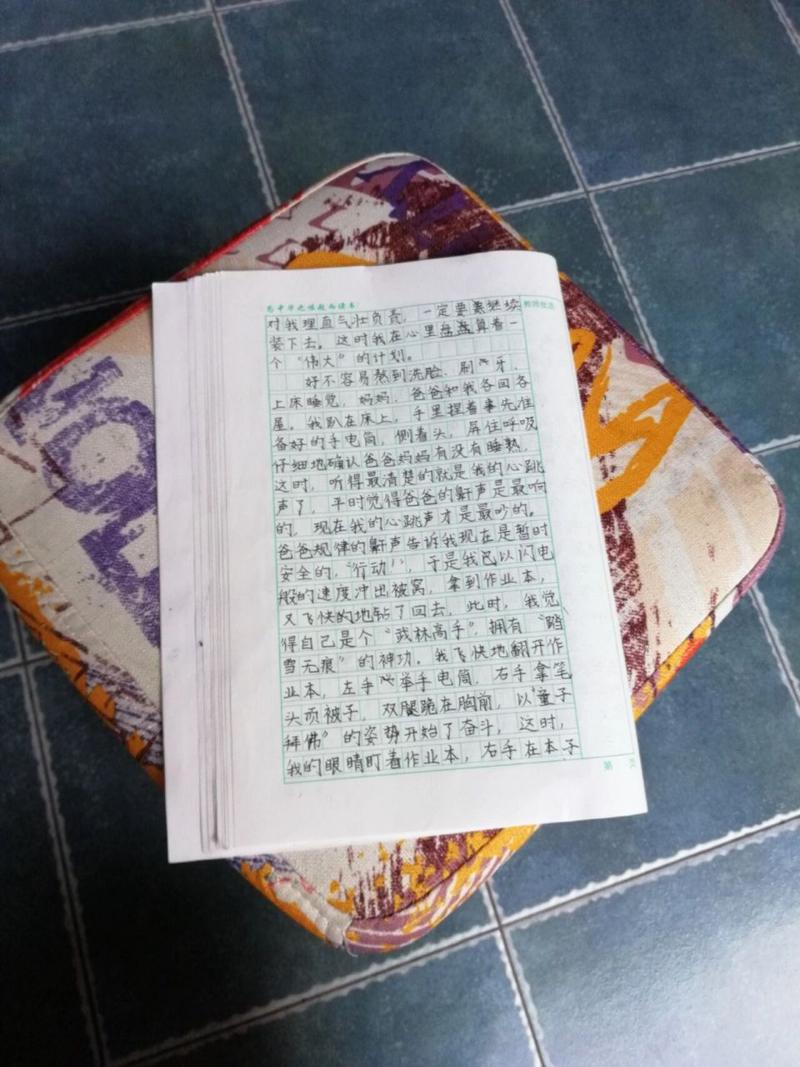 为中华之崛起而读书
教师批注
对我理直气壮负责，一定要继续
装下去。这时我在心里盘盘算着一
个“伟大”的计划。
好不容易熬到洗脸、刷牙，
上床睡觉，妈妈、爸爸和我各回各
屋。我趴在床上，手里捏着事先准
备好的手电筒，侧着头，屏住呼吸
仔细地确认爸爸妈妈有没有睡熟，
这时，听得最清楚的就是我的心跳
声了，平时觉得爸爸的鼾声是最响
的，现在我的心跳声才是最吵的。
爸爸规律的鼾声告诉我现在是暂时
安全的，“行动！”，于是我已以闪电
般的速度冲出被窝，拿到作业本，
又飞快的地钻了回去，此时，我觉
得自己是个“武林高手”，拥有“踏
雪无痕”的神功。我飞快地翻开作
业本，左手举手电筒，右手拿笔
头顶被子，双腿跪在胸前，以“童子
拜佛”的姿势开始了奋斗，这时，
我的眼睛盯着作业本，右手在本子
第 页